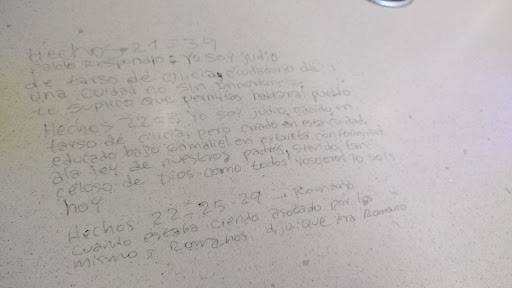 Hechos 21=39
Pablo Respondio: Yo soy judio
de tarso de cilicia, ciudadano de
una Cuidad no sin Importancia:
te suplico que permitas hablar al pueblo
Hechos 22=3, Yo soy judio, nacido en
tarso de cilicia, pero criado en esta cuidad,
educado bajo Gamaliel en estricta conformidad
a la ley de nuestros padres, siendo tan
celoso de Dios como todos vosotros lo sois
hoy
Hechos 22=25-29 → Romano
Cuando estaba ciendo asotado por lo
mismos Romanos, dijo que era Romano